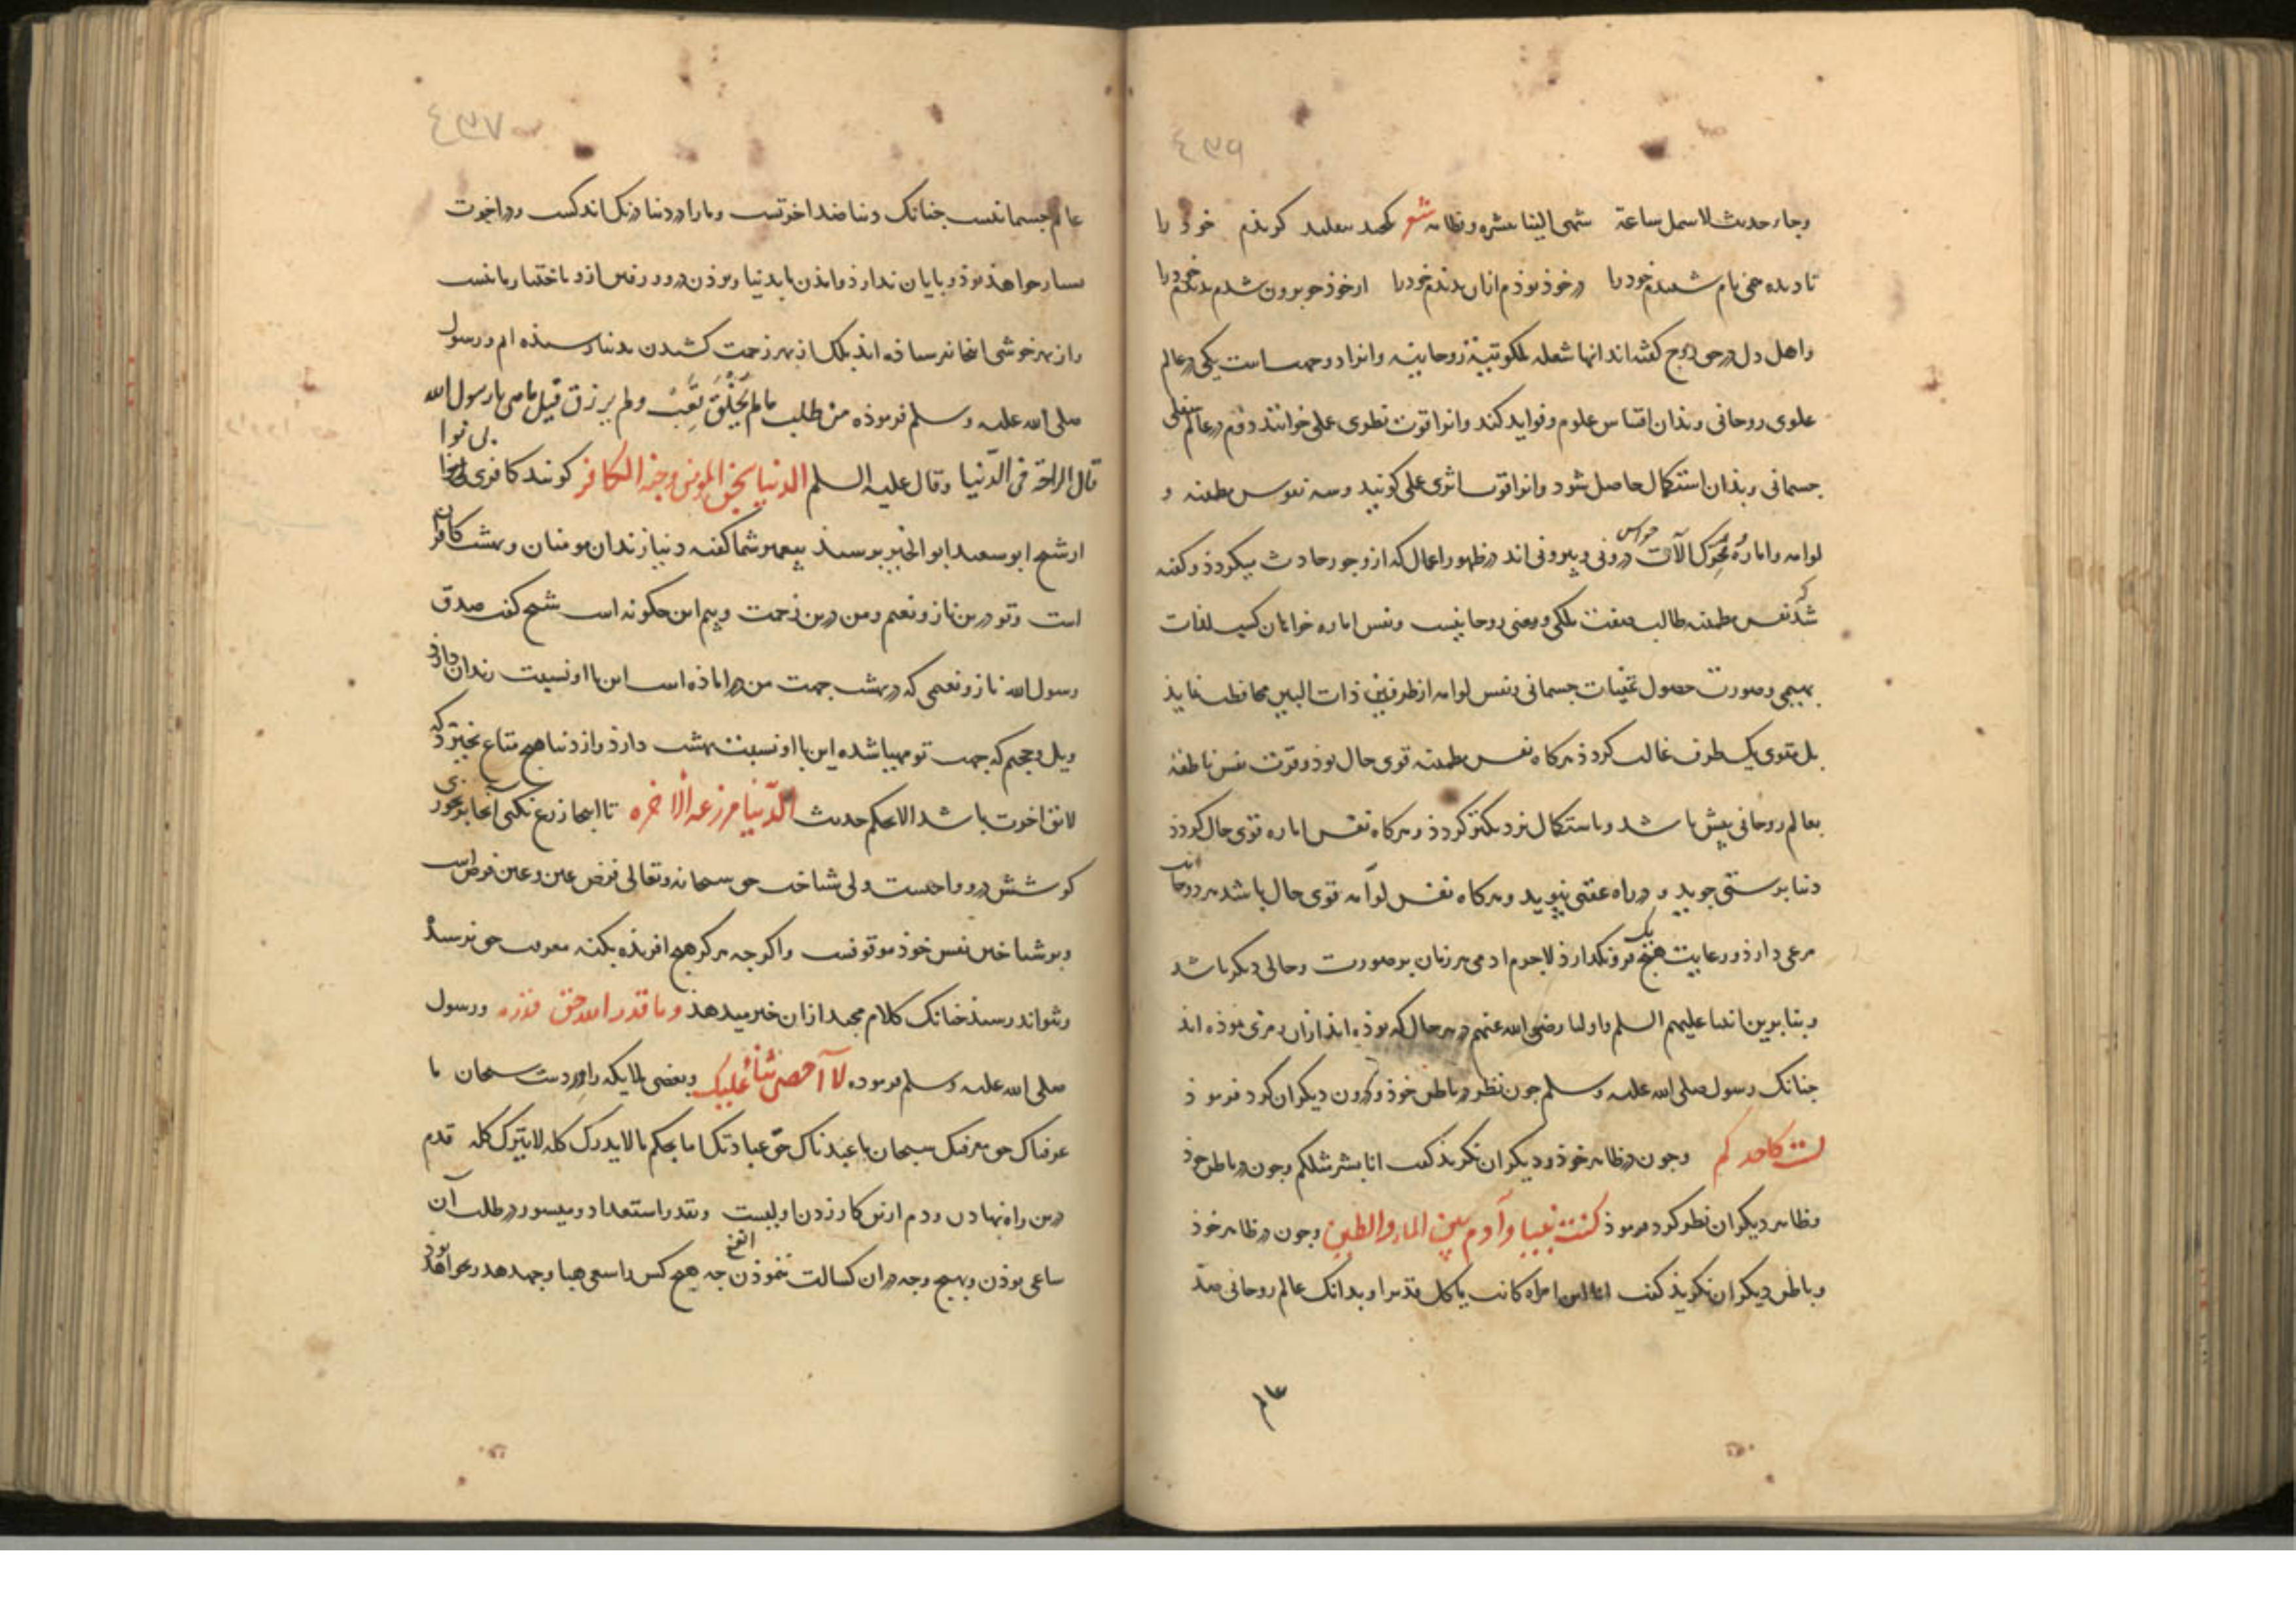 وجاء حدیث لا سمل ساعة شهی الینا نشره و نظامه شعر یکچند بتقلید گزیدم خود را
نادیده همی نام شنیدم خود را در خود بوذم از ان ندیدم خود را از خود چو برون شدم بدیدم خود را
و اهل دل در حق روح گفته‌اند انها شعله ملکوتیة روحانیه و انرا دو جهت است یکی در عالم
علوی روحانی و بذان اقتباس علوم و فواید کند و انرا قوت نظری علمی خوانند دوم در عالم سفلی
جسمانی و بذان استکمال حاصل شود و انرا قوت اثری عملی گویند و سه نفوس مطمئنه و
لوامه و اماره محرک آلات حواس درونی و بیرونی اند در ظهور اعمال که از وجود حادث میکردذ و گفته
شد که نفس مطمئنه طالب صفت ملکی و معنی روحانیست و نفس اماره خواهان کسب لذات
بهیمی و صورت حصول تمنیات جسمانی و نفس لوامه از طرفین ذات البین محافظت نمایذ
بل بتقوی یک طرف غالب کردذ هرکاه نفس مطمئنه قوی حال بوذ و قوت نفس ناطقه
بعالم روحانی بیش باشد و باستکمال نزدیکتر کردذ و هرکاه نفس اماره قوی حال کردذ
دنیا پرستی جوید و در راه عقبی نپوید و هرکاه نفس لوامه قوی حال باشد هر دو جانب
مرعی دارذ و رعایت هیچ یک فرو نکذارذ لاجرم ادمی هر زمان بر صورت و حالی دیکر باشد
و بنا برین انبیا علیهم السلم و اولیا رضی الله عنهم در هر حال که بوذه اند ازان رمزی نموذه اند
جنانک رسول صلی الله علیه وسلم جون نظر در باطن خوذ و درون دیکران کرد فرموذ
لست کاحدکم وجون در ظاهر خوذ و دیکران نکرید گفت انا بشر مثلکم وجون در باطن خوذ
وظاهر دیکران نظر کرد فرموذ کنت نبیا و آدم بین الماء والطین وجون در ظاهر خوذ
و باطن دیکران نکریذ گفت انما انا ابن امراة کانت یاکل قدیدا و بدانک عالم روحانی ضد
عالم
عالم جسمانیست جنانک دنیا ضد اخرتست و ما را در دنیا درنک اندکست و در اخرت
بسیار خواهذ بوذ و پایان ندارذ و امذن ما بدنیا و بوذن در و و رفتن ازو باختیار ما نیست
و از بهر خوشی اینجا نفرستاده اند بلک از بهر زحمت کشیدن بدنیا رسیذه ام و رسول
صلی الله علیه وسلم فرموذه من طلب مالم یخلق تعب ولم یرزق قیل ما هی یا رسول الله
قال الراحة فی الدنیا وقال علیه السلم الدنیا سجن المؤمن وجنة الکافر کویند کافری بی نوا
از شیخ ابو سعید ابو الخیر برسیذ پیغمبر شما گفته دنیا زندان مومنان و بهشت کافران
است و تو درین ناز و نعم و من درین زحمت و بیم این جکونه است شیخ گفت صدق
رسول الله ناز و نعمی که در بهشت جهت من در اماذه است این با او نسبت زندان دارذ
و یل و جحیم که جهت تو مهیا شده این با او نسبت بهشت دارذ و از دنیا هیچ متاع نخیزد که
لایق اخرت باشد الا بحکم حدیث الدنیا مزرعة الاخرة تا اینجا زرع نکنی انجا بر نخوری
کوشش درو واجبست ولی شناخت حق سبحانه وتعالی فرض عین وعین فرض است
و بر شناختن نفس خوذ موقوفست واکرجه هرکز هیچ افریذه بکنه معرفت حق نرسد
و نتواند رسید جنانک کلام مجید ازان خبر میدهذ وما قدروا الله حق قدره و رسول
صلی الله علیه وسلم فرموده لا احصی ثناء علیک وبعضی ملایکه را ورد است سبحان ما
عرفناک حق معرفتک سبحان ما عبدناک حق عبادتک اما بحکم مالا یدرک کله لا یترک کله قدم
درین راه نهادن و دم ازین کار زدن اولیست و بقدر استعداد و میسور در طلب آن
ساعی بوذن و بهیچ وجه دران کسالت ننموذن جه هیچ کس را سعی هبا و جهد هدر نخواهد بوذ